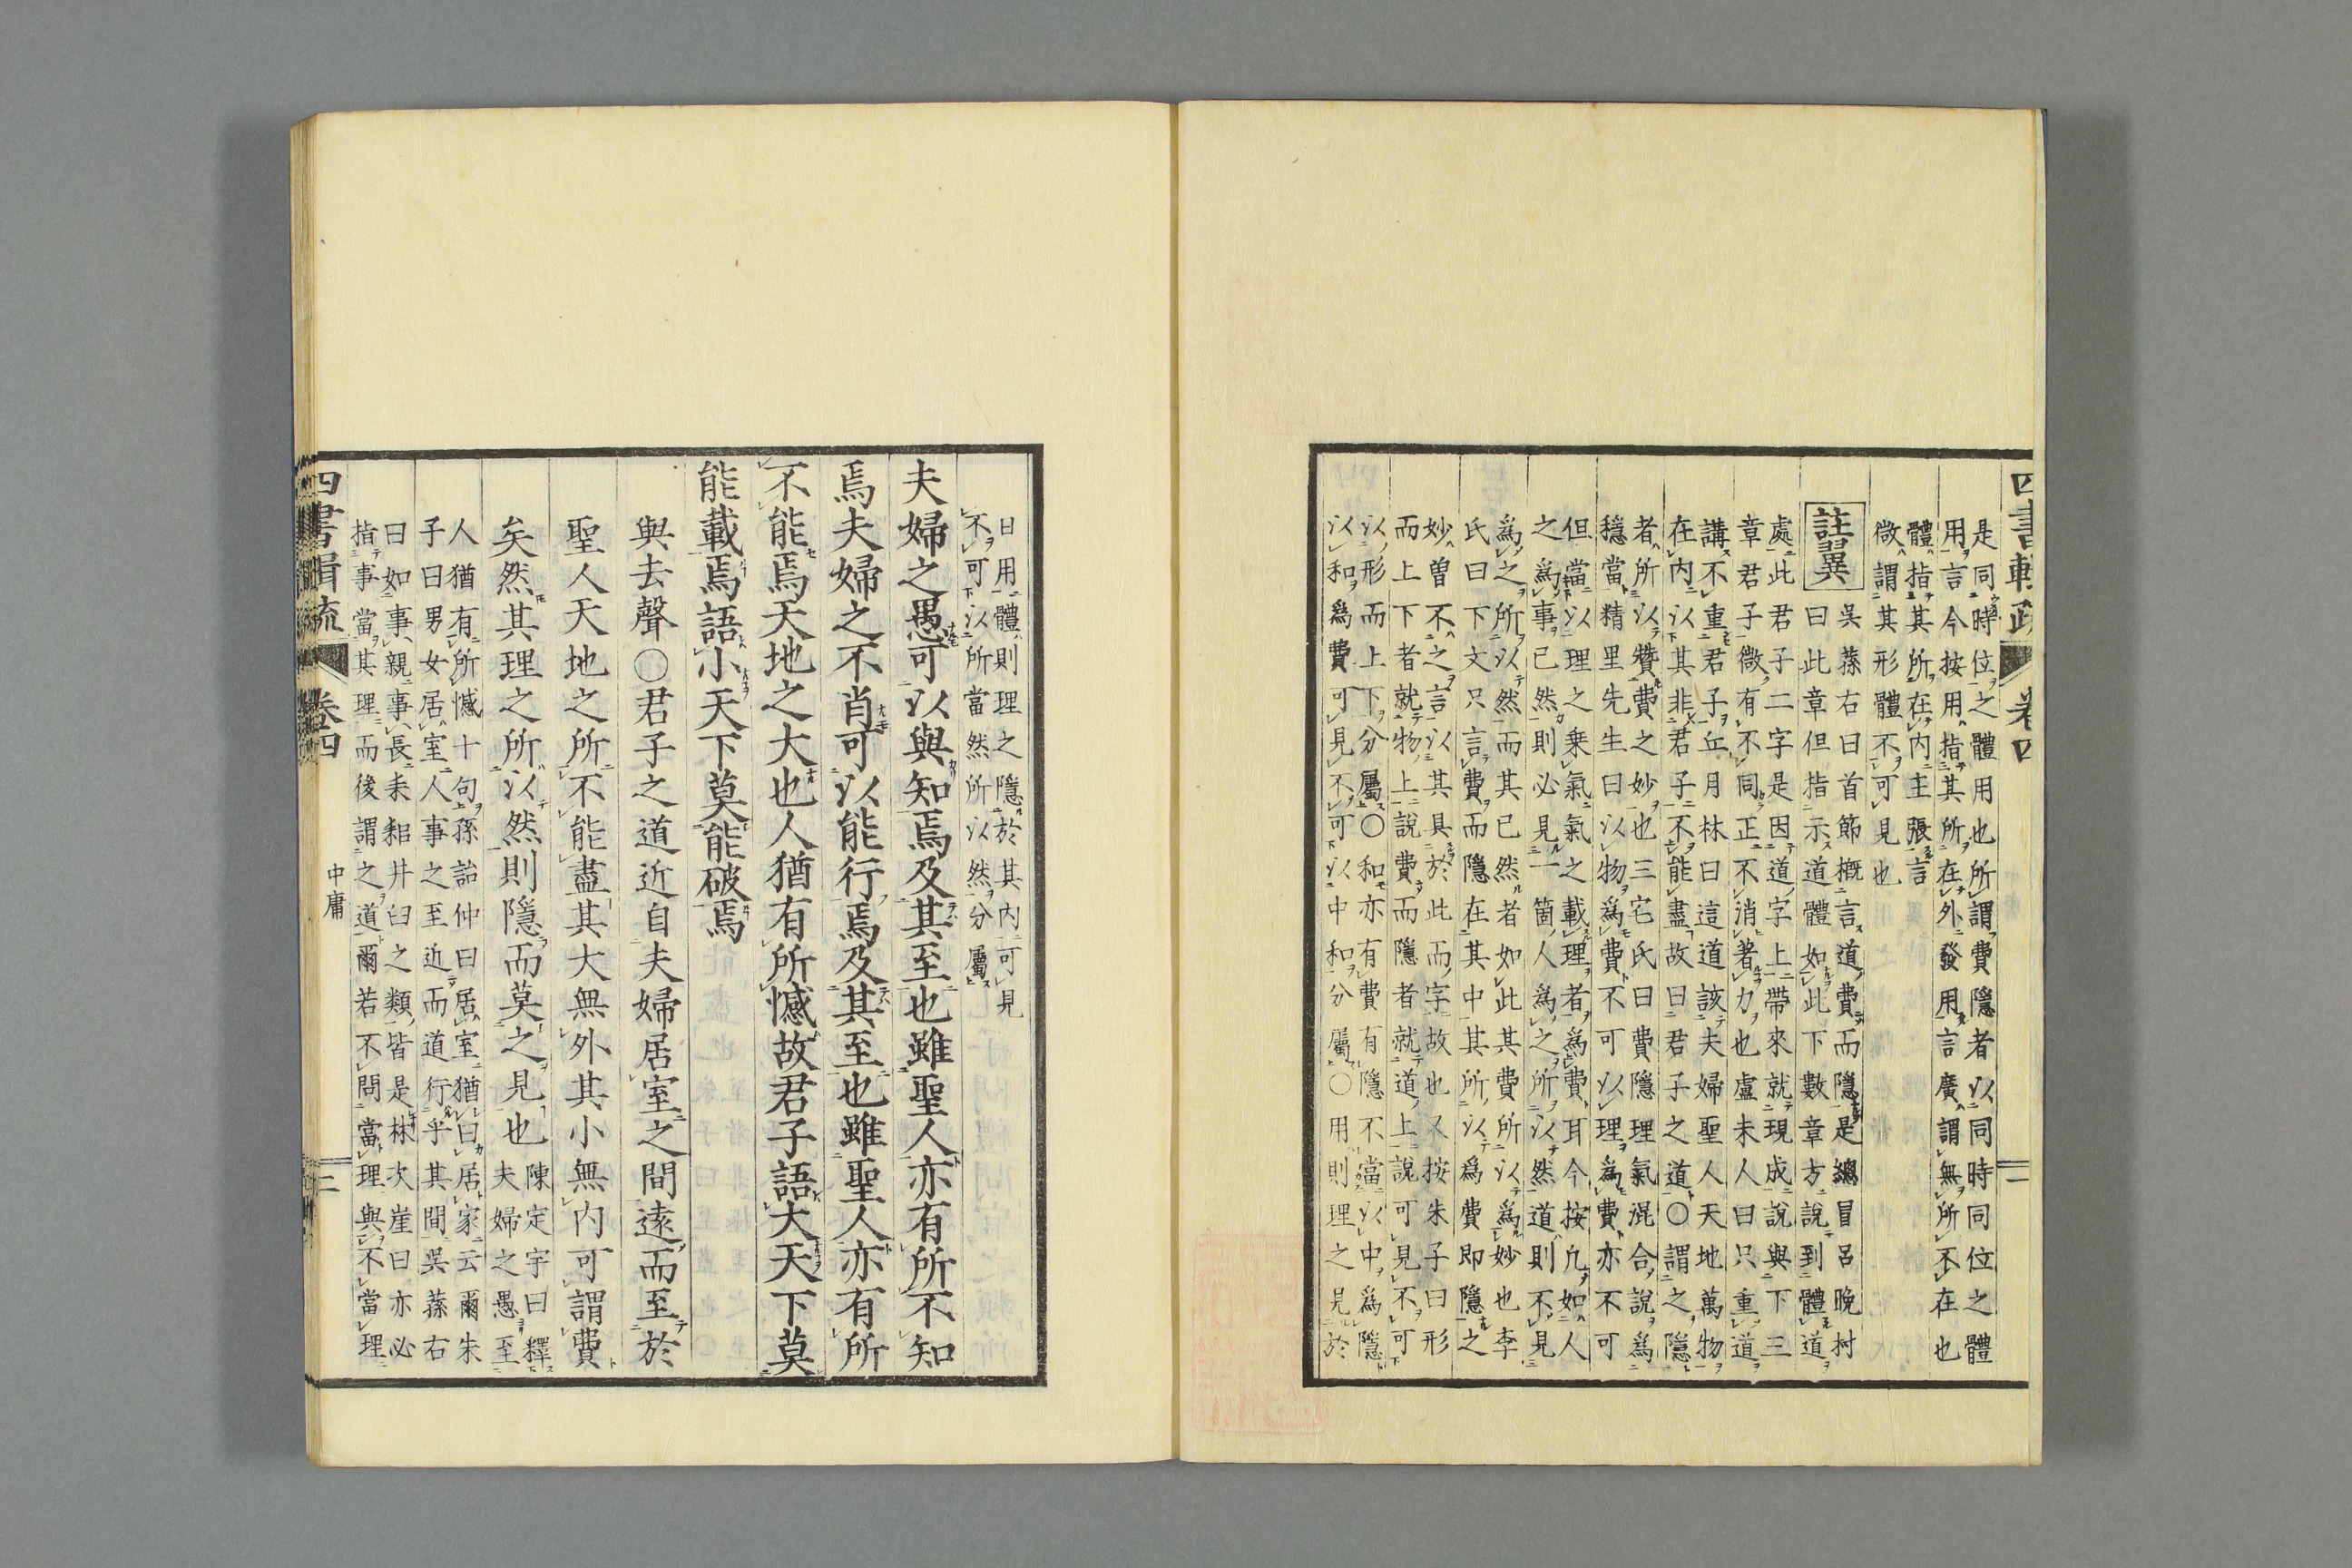 四書輯疏
卷四
二
是同時位之體用也所謂費隱者以同時同位之體
用言今按用指其所在外發用言廣謂無所不在也
體指其所在内主張言
微謂其形體不可見也
註翼
吳蓀右曰首節概言道費而隱是總冒呂晚村
曰此章但指示道體如此下數章方說到體道
處此君子二字是因道字上帶來就現成說與下三
章君子微有不同正不消著力也盧未人曰只重道
講不重君子丘月林曰這道該夫婦聖人天地萬物
在内以其非君子不能盡故曰君子之道○謂之隱
者所以贊費之妙也三宅氏曰費隱理氣混合說爲
穩當精里先生曰以物爲費不可以理爲費亦不可
但當以理之乗氣氣之載理者爲費耳今按凡如人
之爲事已然則必見一箇人爲之所以然道則不見
爲之所以然而其已然者如此其費所以爲妙也李
氏曰下文只言費而隱在其中其所以爲費即隱之
妙曽不之言以其具於此而字故也又按朱子曰形
而上下者就物上說費而隱者就道上說可見不可
以形而上下分屬○和亦有費有隱不當以中爲隱
以和爲費可見不可以中和分屬○用則理之見於
日用體則理之隱於其内可見
不可以所當然所以然分屬
夫婦之愚可以與知焉及其至也雖聖人亦有所不知
焉夫婦之不肖可以能行焉及其至也雖聖人亦有所
不能焉天地之大也人猶有所憾故君子語大天下莫
能載焉語小天下莫能破焉
與去聲○君子之道近自夫婦居室之間遠而至於
聖人天地之所不能盡其大無外其小無内可謂費
矣然其理之所以然則隱而莫之見也
陳定宇曰釋
夫婦之愚至
人猶有所憾十句孫詒仲曰居室猶曰居家云爾朱
子曰男女居室人事之至近而道行乎其間吳蓀右
曰如事親事長耒耜井臼之類皆是林次崖曰亦必
指事當其理而後謂之道爾若不問當理與不當理
四書輯疏
卷四
中庸
三